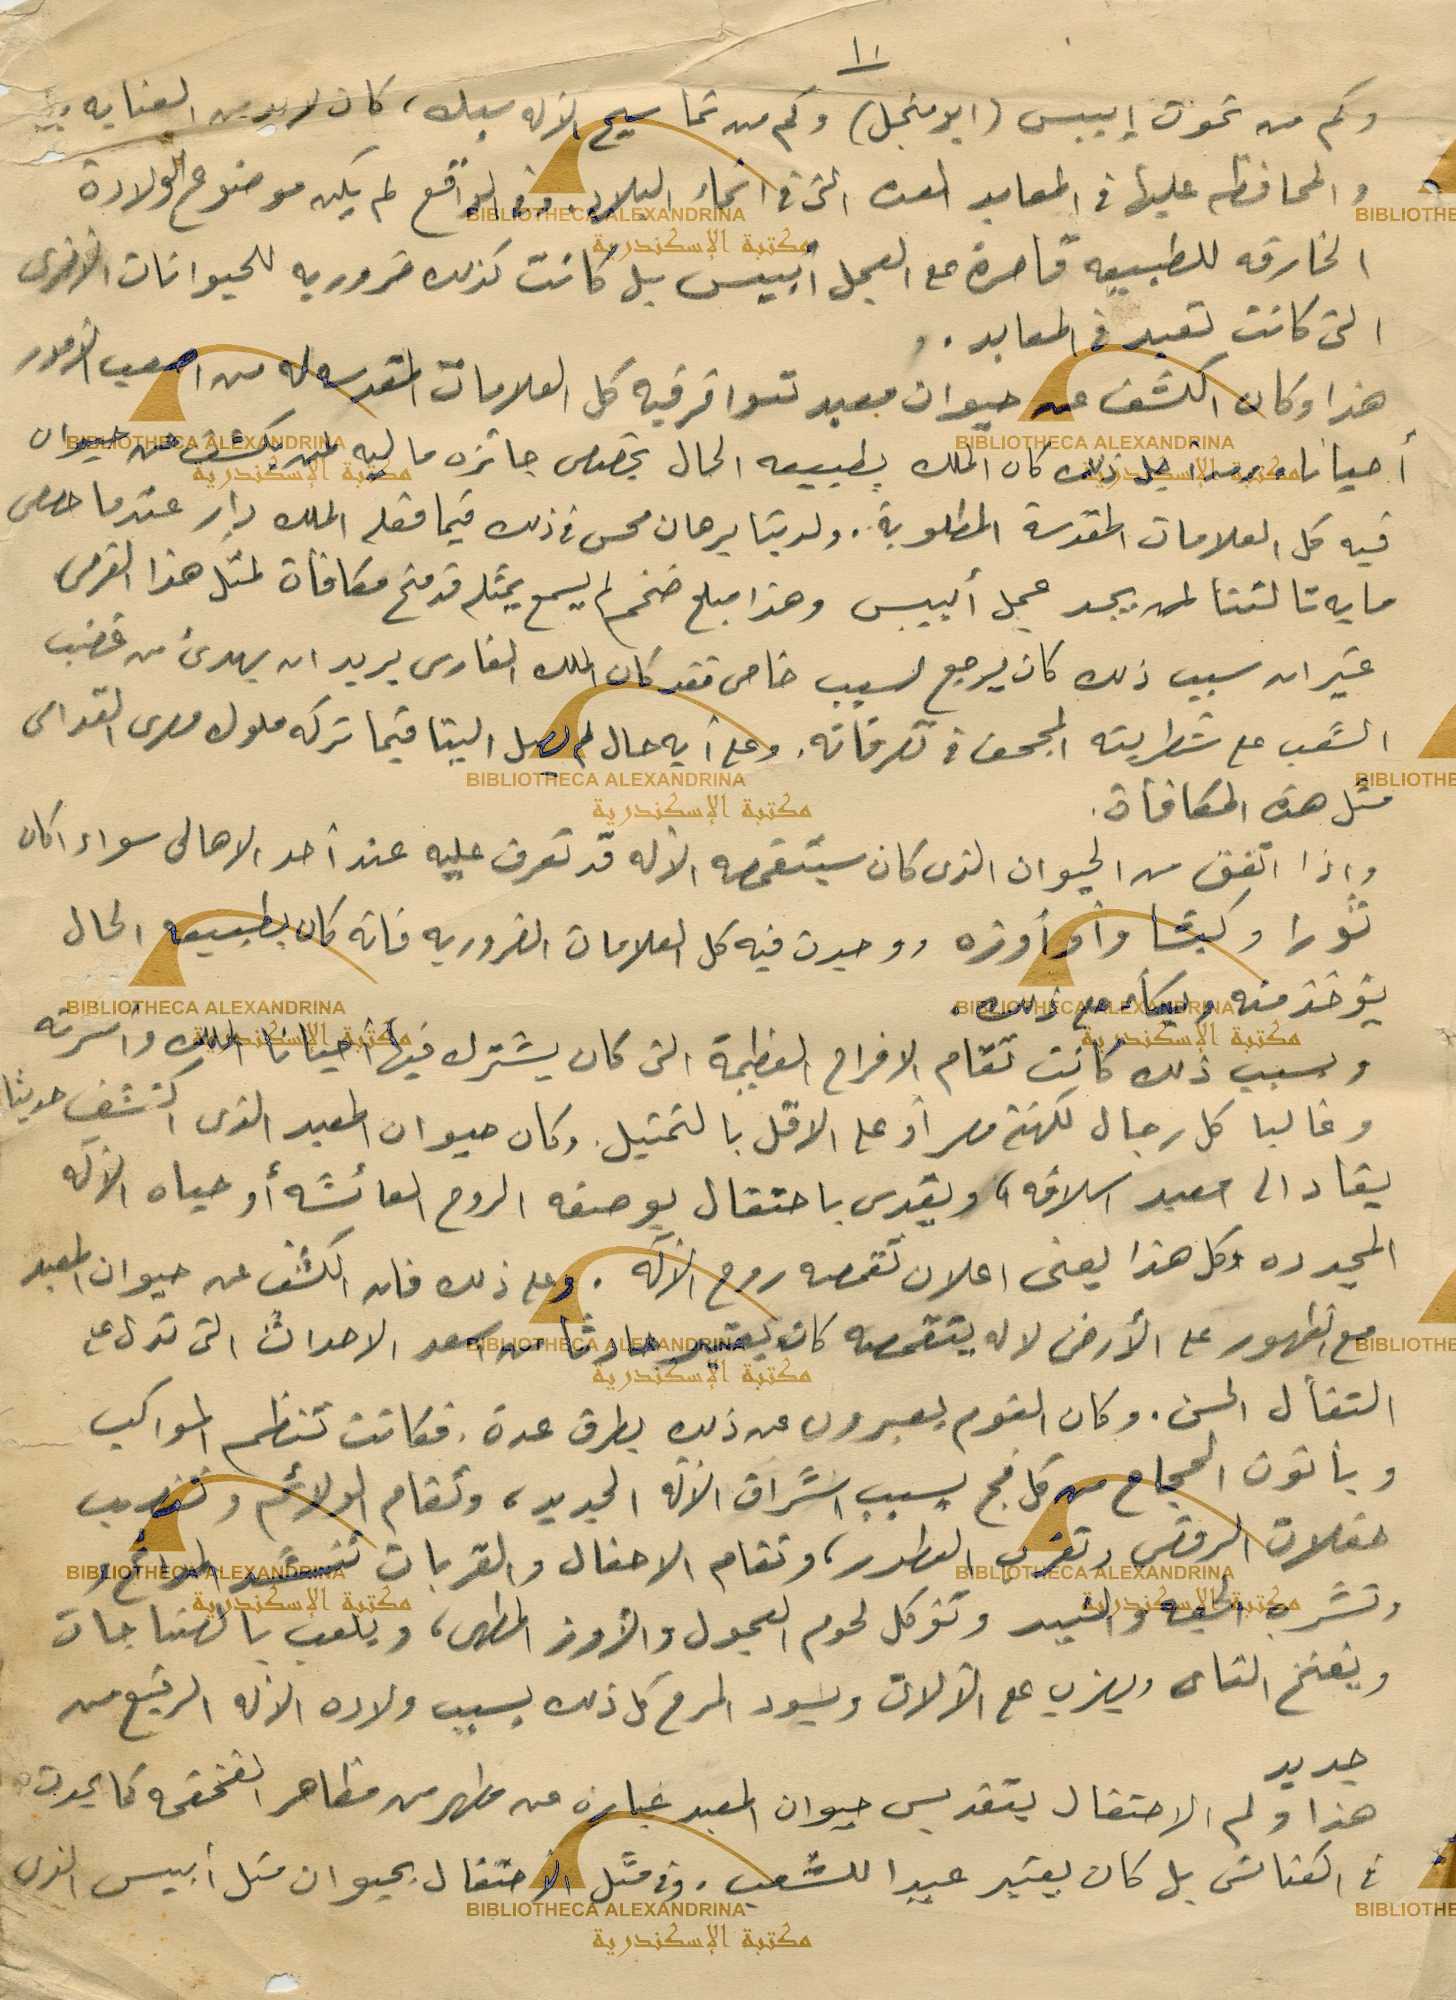 ١٠
وكم من تحوت إيبيس (ابو منجل) وكم من تماسيح الاله سبك، كان لابد من العنايه
والمحافظه عليها في المعابد العده التى في انحاء البلاد. وفى الواقع لم يكن موضوع الولادة
الخارقه للطبيعه قاصرة على العجل أبيس بل كانت كذلك ضروريه للحيوانات الأخرى
التى كانت تعبد في المعابد.
هذا وكان الكشف عن حيوان معبد تتوافر فيه كل العلامات المقدسه له من اصعب الأمور
أحيانا، ومن اجل ذلك كان الملك بطبيعه الحال يخصص جائزه ماليه لمن يكشف عن حيوان
فيه كل العلامات المقدسة المطلوبة. ولدينا برهان محس في ذلك فيما فعله الملك دارا عندما خصص
مايه تالنتا لمن يجد عجل أبيس وهذا مبلغ ضخم لم يسمع بمثله قد منح مكافأة لمثل هذا الغرض
غير ان سبب ذلك كان يرجع لسبب خاص فقد كان الملك الفارسى يريد ان يهدئ من غضب
الشعب على شطربته المجحف في تصرفاته. وعلى أيه حال لم يصل الينا فيما تركه ملوك مصر القدامى
مثل هذه المكافأة.
واذا اتفق ان الحيوان الذى كان سيتقمصه الاله قد تعرف عليه عند أحد الاهالى سواء اكان
ثورا او كبشا وأو أوزه ووجدت فيه كل العلامات الضروريه فانه كان بطبيعه الحال
يؤخذ منه ويكافأ على ذلك.
وبسبب ذلك كانت تقام الافراح العظيمة التى كان يشترك فيها أحيانا الملك وأسرته
وغالبا كل رجال كهنة مصر أو على الاقل بالتمثيل. وكان حيوان المعبد الذى اكتشف حديثا
يقاد الى معبد اسلافه، ويقدس باحتفال بوصفه الروح العائشه أو حياه الاله
المجدده وكل هذا يعنى اعلان تقمصه روح الاله. وعلى ذلك فان الكشف عن حيوان المعبد
مع ظهور على الأرض لاله يتقمصه كان يعتبر حادثا من اسعد الاحداث التى تدل على
التفأل الحسن. وكان القوم يعبرون عن ذلك بطرق عدة. فكانت تنظم المواكب
ويأتون الحجاج من كل فج بسبب اشراق الاله الجديد، وتقام الولائم وتنصب
حفلات الرقص وتحرق العطور، وتقام الاحفال والقربات تنشد المدائح و
وتشرب الجعه والنبيذ وتؤكل لحوم العجول والأوز المطهى، ويلعب بالصناجات
وينفخ الناى ويضرب على الآلات ويسود المرح كل ذلك بسبب ولاده الاله الرفيع من
جديد
هذا ولم الاحتفال بتقديس حيوان المعبد عبارة عن مظهر من مظاهر الفخفخه كما يحدث
في الكنائس بل كان يعتبر عيدا للشعب. وفى مثل الاحتفال بحيوان مثل أبيس الذى
BIBLIOTHECA ALEXANDRINA
مكتبة الإسكندرية